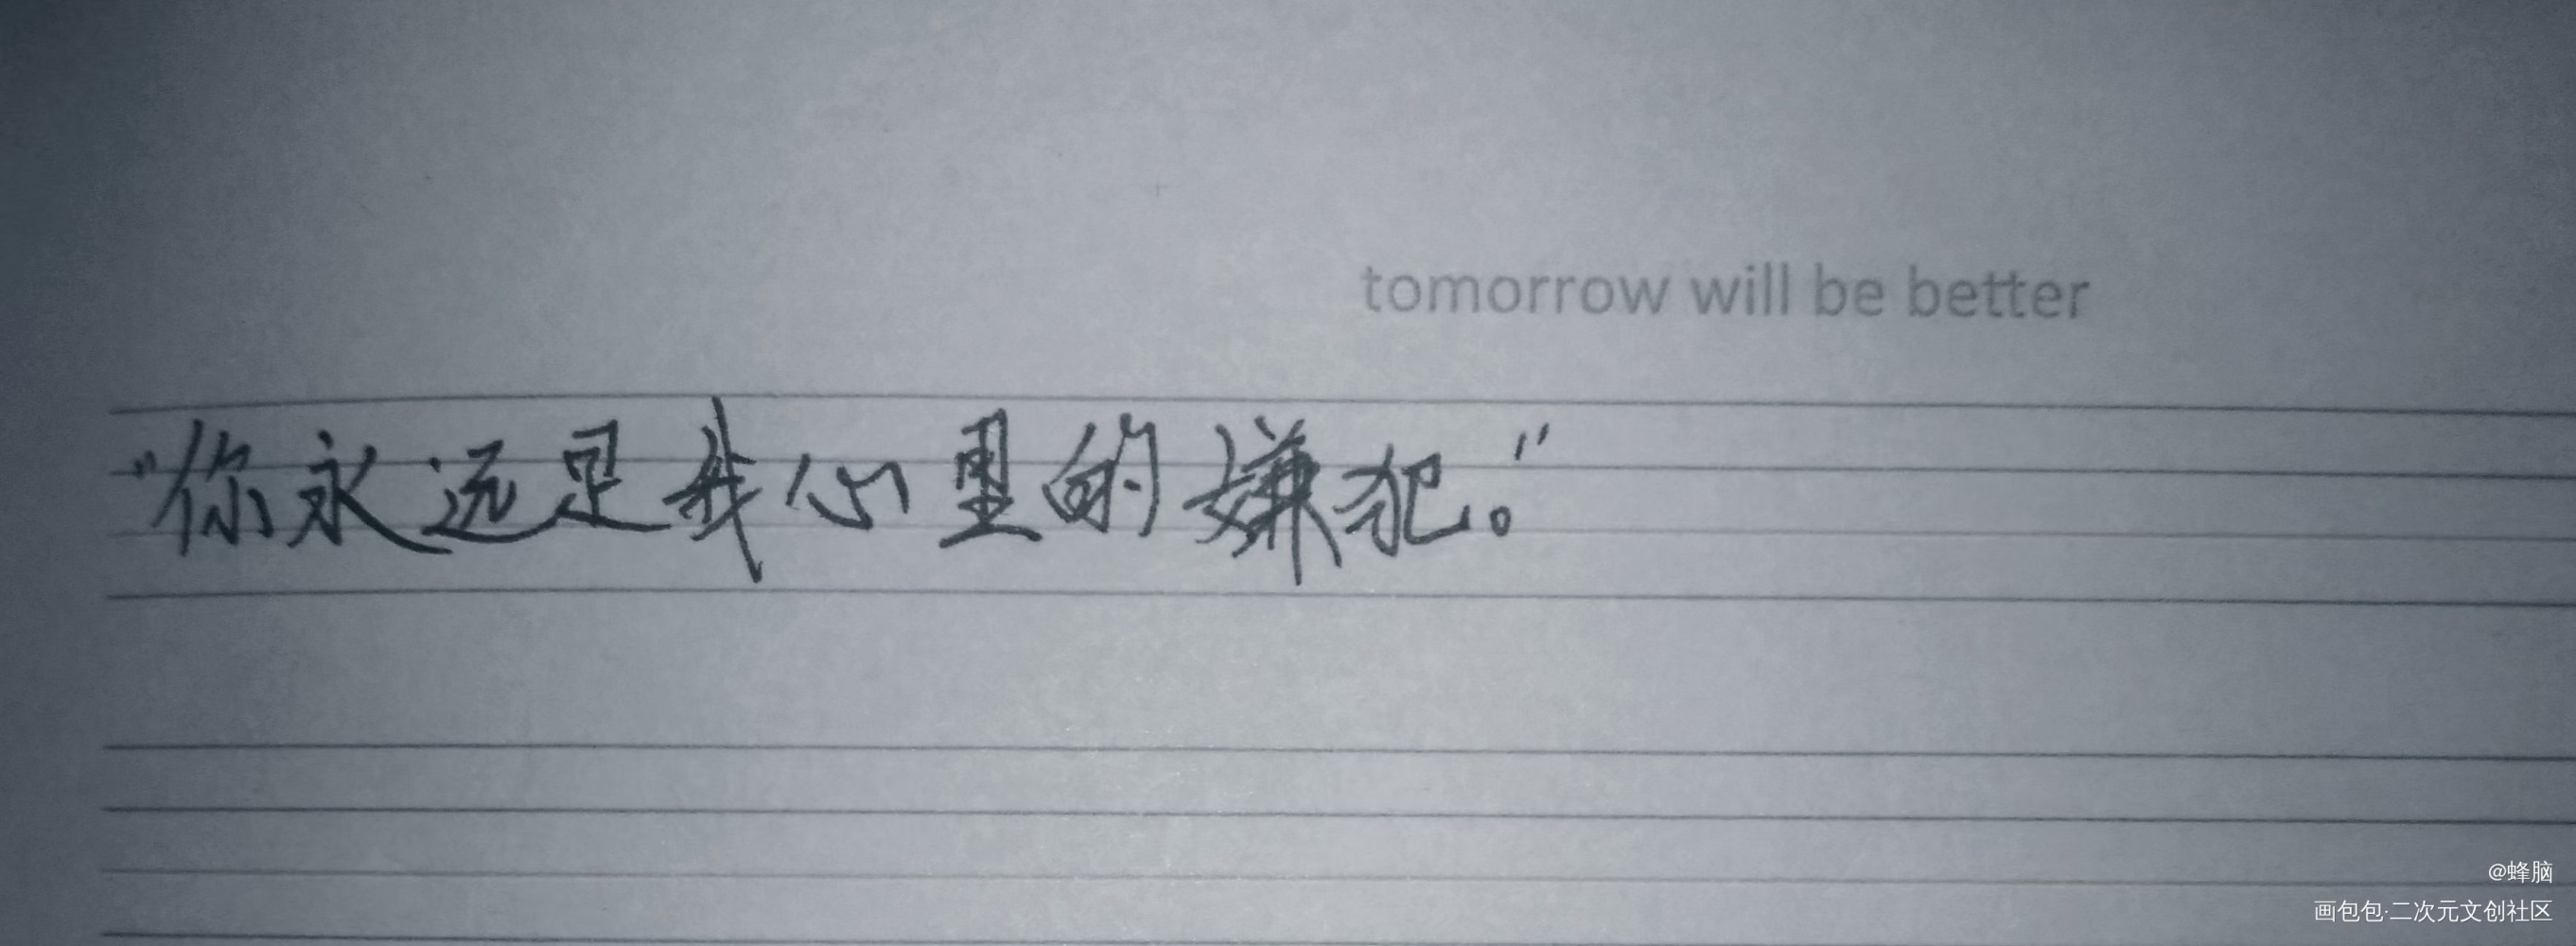 tomorrow will be better
“你永远是我心里的嫌犯。”
@蜂脑
画包包·二次元文创社区